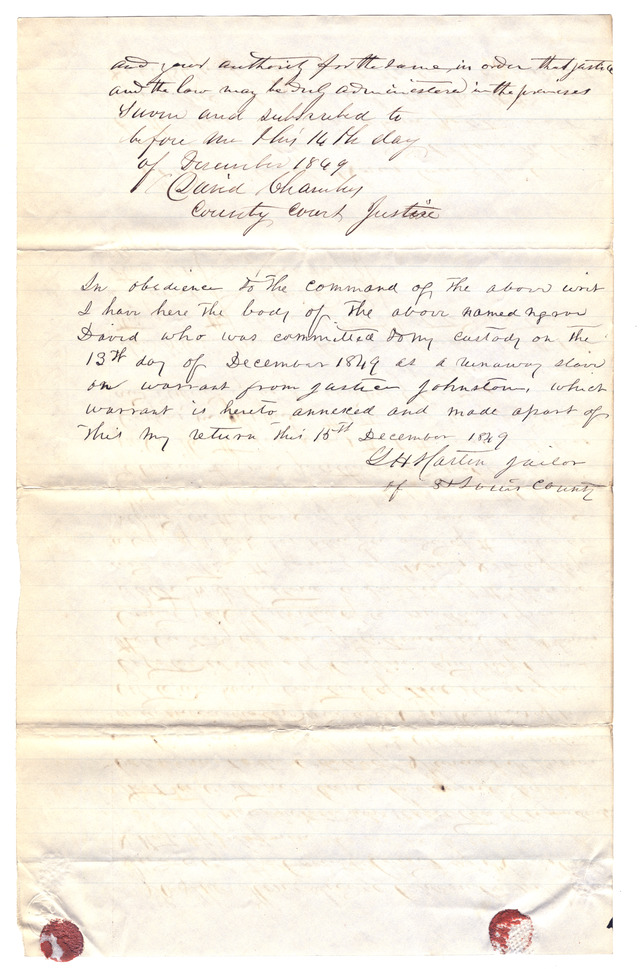 and your authority for the same in order that justice
and the law may be duly administered in the premises
Sworn and subscribed to
before me this 14th day
of December 1849
David Chambers
County Court Justice
In obedience to the command of the above writ
I have here the body of the above named negro
David who was committed to my custody on the
13th day of December 1849 as a runaway slave
on warrant from justice Johnston, which
warrant is hereto annexed and made apart of
this my return this 15th December 1849
Martin jailor
of St Louis County